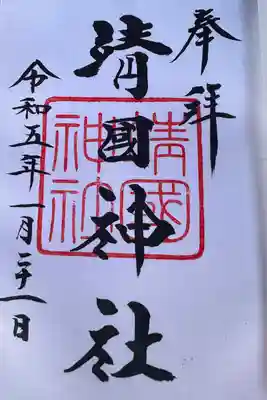 奉拝
靖國神社
靖國
神社
令和五年一月二十一日